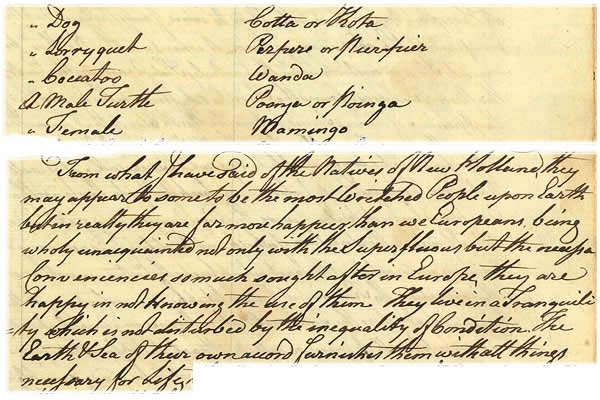 " Dog Cotta or Kota
" Lorryquet Perpere or Pier-pier
" Coccatoo Wanda
A Male Turtle Poonja or Poinga
" Female Mamingo
From what I have said of the Natives of New Holland they
may appear to some to be the most wretched People upon Earth
but in reality they are far more happier than we Europeans, being
wholy unacquainted not only with the Superfluous but the necessa
Conveniencies so much sought after in Europe, they are
happy in not knowing the use of them. They live in a Tranquili
=ty which is not disturbed by the inequality of Condition. The
Earth & Sea of their own accord furnishes them with all things
necessary for Life,